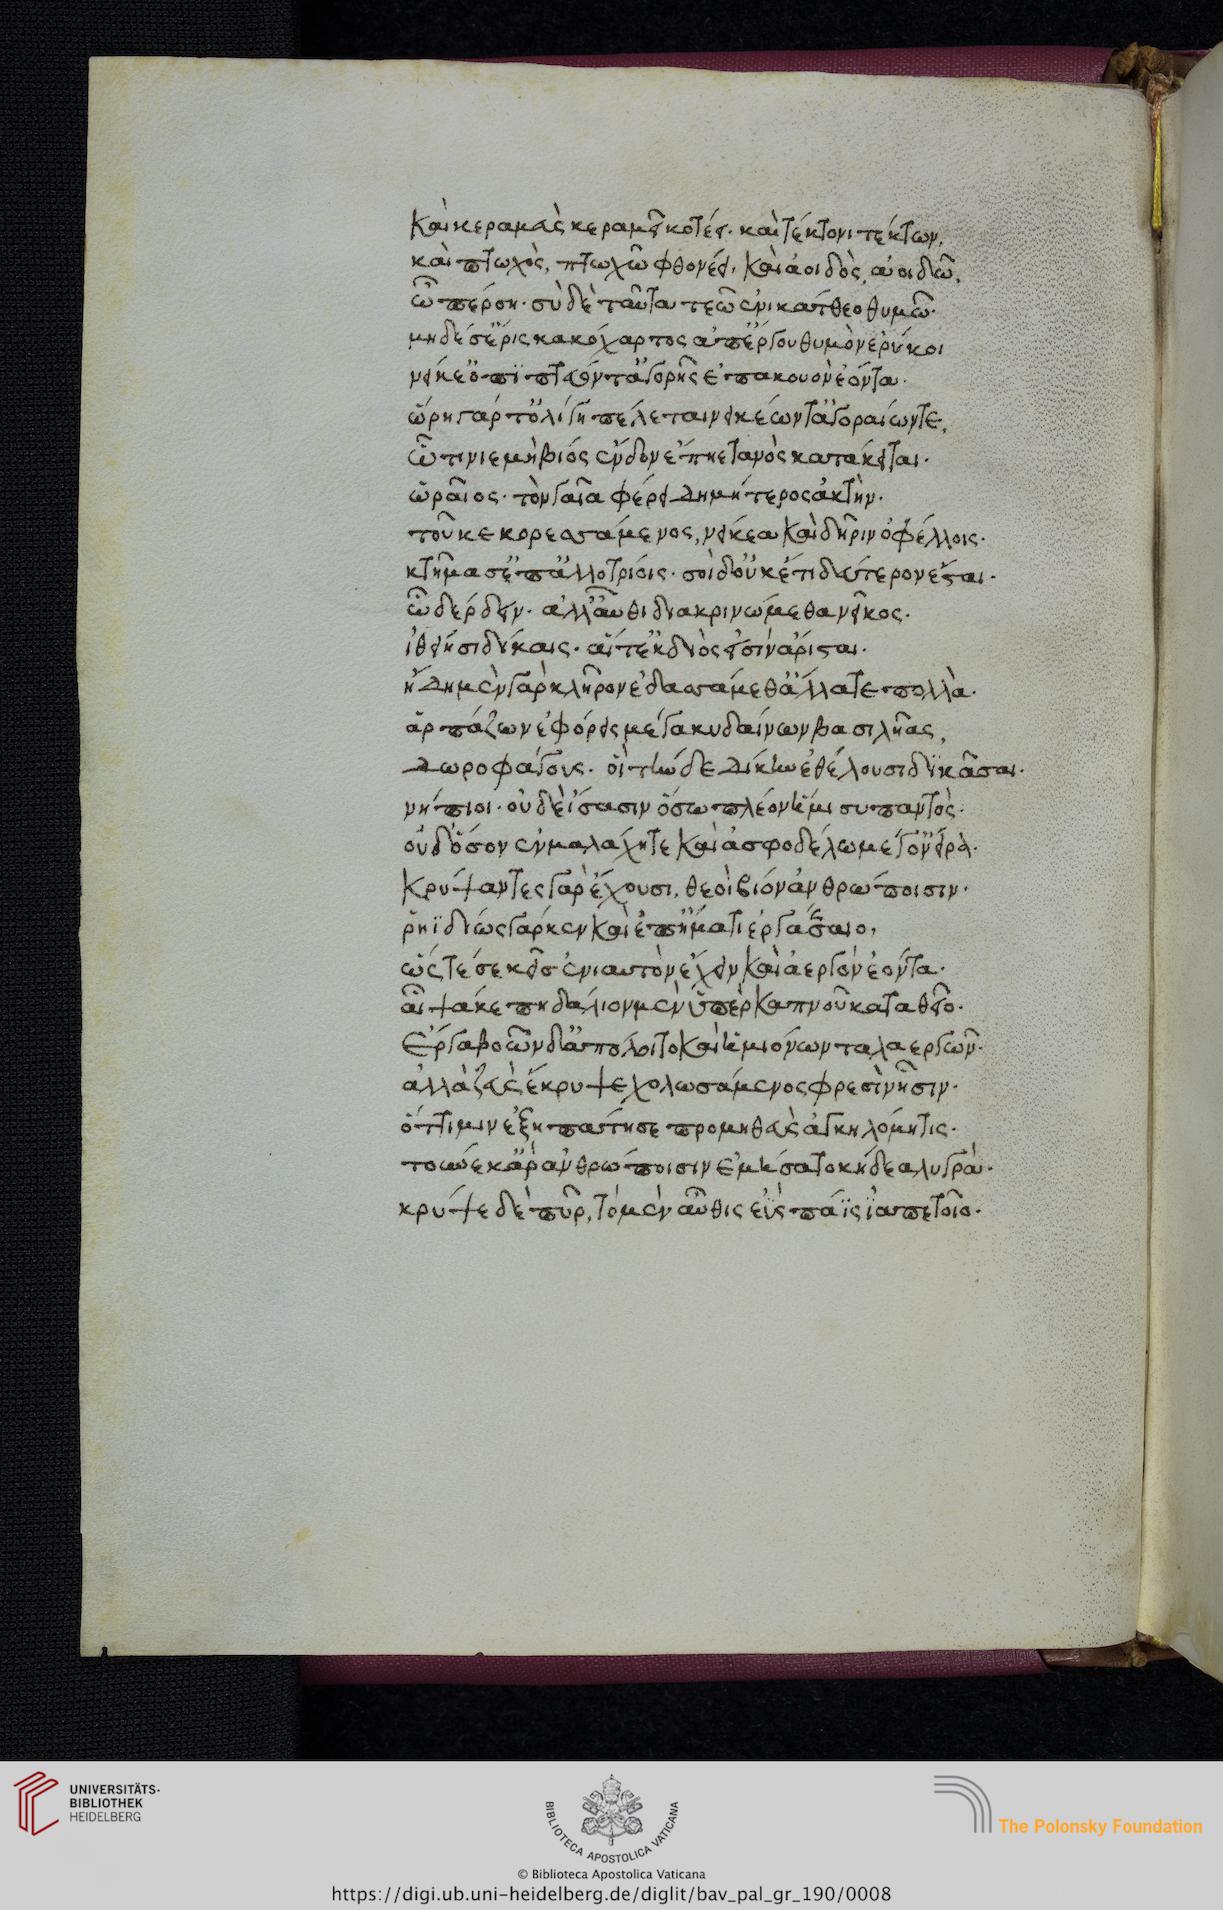 Καὶ κεραμεὺς κεραμεῖ κοτέει. καὶ τέκτονι τέκτων,
καὶ πτωχὸς, πτωχῶ φθονέει, καὶ ἀοιδὸς, ἀοιδῶ,
ὦ πέρση. σὺ δὲ ταῦτα τεῶ ἐνικάτθεο θυμῶ.
μηδέ σ' ἔρις κακόχαρτος ἀπ' ἔργου θυμὸν ἐρύκοι
νείκε' ὀπιπτεύοντ' ἀγορῆς ἐπακουὸν ἐόντα.
ὥρη γάρ τ' ὀλίγη πέλεται νεικέων τ' ἀγοραίων τε,
ὧ τινι μὴ βίος ἔνδον ἐπηετανὸς κατάκειται.
ὡραῖος. τὸν γαῖα φέρει Δημήτερος ἀκτὴν.
τοῦ κε κορεσσάμενος, νείκεα καὶ δῆριν ὀφέλλοις.
κτήμασ' ἐπ' ἀλλοτρίοις. σοὶ δ' οὐκέτι δεύτερον ἔσται.
ὧδ' ἔρδειν. ἀλλ' αὖθι διακρινώμεθα νεῖκος.
ἰθείησι δίκαις. αἵ τ' ἐκ διὸς εἰσὶν ἄρισται.
ἤδη μὲν γὰρ κλῆρον ἐδασσάμεθ' ἄλλα τε πολλὰ.
ἁρπάζων ἐφόρεις μέγα κυδαίνων βασιλῆας,
Δωροφάγους. οἳ τήνδε Δίκην ἐθέλουσι δικάσσαι.
νήπιοι. οὐδὲ ἴσασιν ὅσω πλέον ἥμισυ παντὸς.
οὐδ' ὅσον ἐν μαλάχη τε καὶ ἀσφοδέλω μέγ' ὄνειαρ.
Κρύψαντες γὰρ ἔχουσι, θεοὶ βίον ἀνθρώποισιν.
ῥηϊδίως γάρ κεν καὶ ἐπ' ἤματι ἐργάσσαιο,
ὥς τέ σε κεἰς ἐνιαυτὸν ἔχειν καὶ ἀεργὸν ἐόντα.
αἶψά κε πηδάλιον μὲν ὑπὲρ καπνοῦ καταθεῖο.
Ἔργα βοῶν δ' ἀπόλοιτο καὶ ἡμιόνων ταλαεργῶν.
ἀλλὰ ζεὺς ἔκρυψε χολωσάμενος φρεσὶν ἧσιν.
ὅττι μιν ἐξηπάτησε προμηθεὺς ἀγκυλόμητις.
τοὔνεκ' ἄρ' ἀνθρώποισιν ἐμήσατο κήδεα λυγρὰ.
κρύψε δὲ πῦρ, τὸ μὲν αὖθις ἐῢς πάϊς ἰαπετοῖο.
UNIVERSITÄTS-
BIBLIOTHEK
HEIDELBERG
BIBLIOTECA APOSTOLICA VATICANA
The Polonsky Foundation
© Biblioteca Apostolica Vaticana
https://digi.ub.uni-heidelberg.de/diglit/bav_pal_gr_190/0008